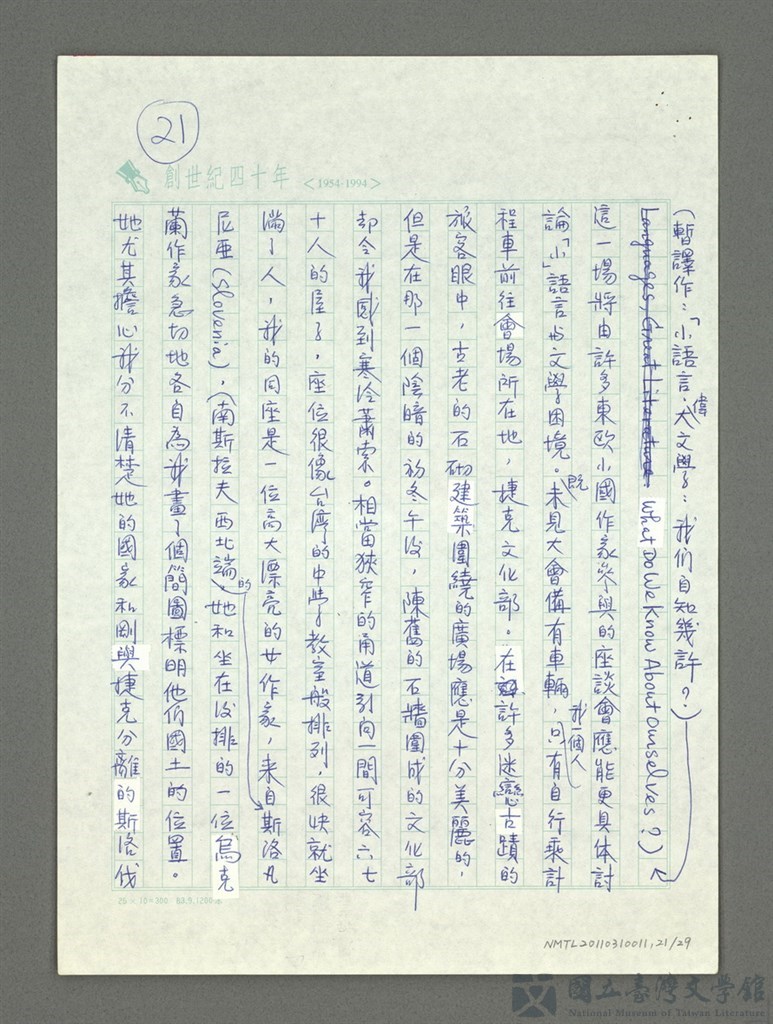 21
創世紀四十年 <1954-1994>
(暫譯作:「小語言、偉大文學:我们自知幾許?)
Languages, Great Literature. What Do We Know About Ourselves?)
這一場將由許多東歐小國作家參與的座談會應能更具体討
論「小」語言与文學困境。既未見大會備有車輛,我一個人只有自行乘計
程車前往會場所在地,捷克文化部。在許多迷戀古蹟的
旅客眼中,古老的石砌建築圍繞的廣場應是十分美麗的,
但是在那一個陰暗的初冬午後,陳舊的石牆圍成的文化部
却令我感到寒冷蕭索。相當狹窄的甬道引向一間可容六七
十人的屋子,座位很像台灣的中學教室般排列,很快就坐
滿了人,我的同座是一位高大漂亮的女作家,來自斯洛凡
尼亞(Slovenia),(南斯拉夫西北端)的她和坐在後排的一位烏克
蘭作家急切地各自為我畫了個簡圖標明他们國土的位置。
她尤其擔心我分不清楚她的國家和剛與捷克分離的斯洛伐
25×12=300 83.9.1200本
NMTL20110310011, 21/29
國立臺灣文學館
National Museum of Taiwan Literature